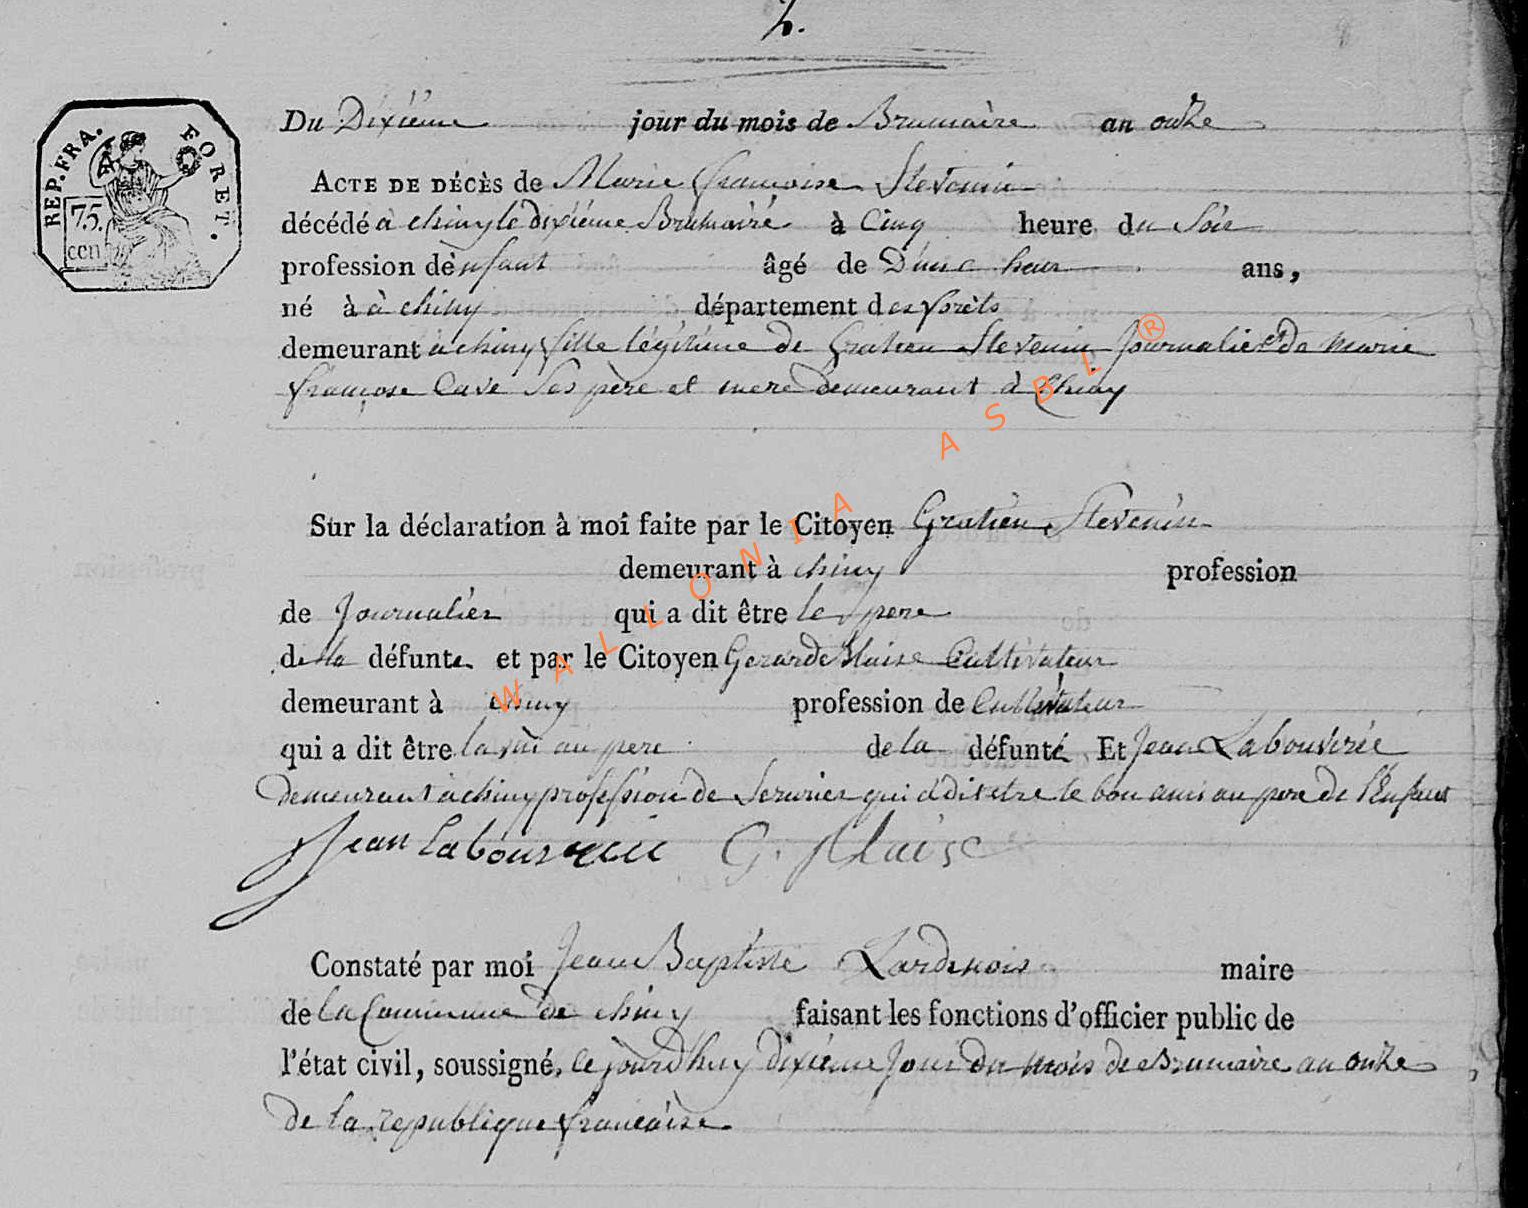 2.
REP. FRA. FORET.
75.
cen
Du Dixiéme jour du mois de Brumaire an onze
ACTE DE DÉCÈS de Marie françoise Stevenin
décédé à chiny le dixiéme Brumaire à Cinq heure du Soir
profession d'enfant âgé de D'une heur ans,
né à à chiny département des forêts
demeurant à chiny fille légitime de Gratien Stevenin Journalier et de Marie
françose Cave Ses père et mere demeurant à Chiny
Sur la déclaration à moi faite par le Citoyen Gratien Stevenin
demeurant à chiny profession
de Journalier qui a dit être le pere
de la défunte et par le Citoyen Gerard Blaise Cultivateur
demeurant à chiny profession de Cultivateur
qui a dit être au pere de la défunte Et Jean Labouverie
demeurant à chiny profession de Serurier qui a dit etre le bon ami au pere de l'Enfant
Jean Labouverie G. Blaise
Constaté par moi Jean Baptiste Lardenois maire
de la Commune de chiny faisant les fonctions d'officier public de
l'état civil, soussigné, ce jourd'huy dixiéme Jour du mois de Brumaire an onze
de la republique francaise
WALLONIA ASBL ®